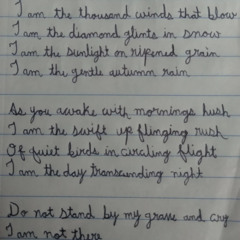 I am the thousand winds that blow
I am the diamond glints in snow
I am the sunlight on ripened grain
I am the gentle autumn rain
As you awake with mornings hush
I am the swift up flinging rush
Of quiet birds in circling flight
I am the day transcending night
Do not stand by my grave and cry
I am not there